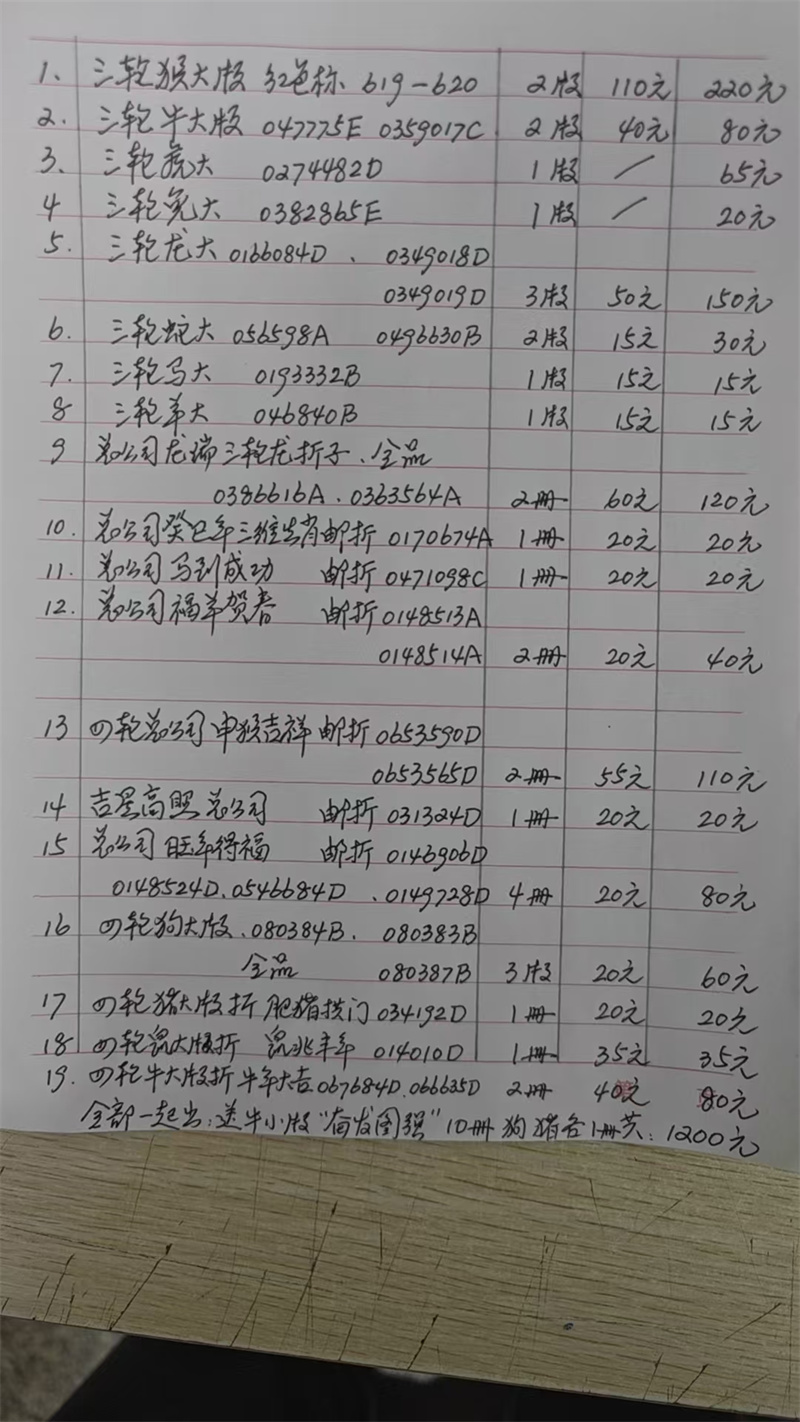 1、 三轮猴大版 红色标 619-620 2版 110元 220元
2. 三轮牛大版 047775E 0359017C 2版 40元 80元
3、 三轮虎大 0274482D 1版 / 65元
4 三轮兔大 0382865E 1版 / 20元
5. 三轮龙大 0166084D、 0349018D
0349019D 3版 50元 150元
6. 三轮蛇大 056598A 0496630B 2版 15元 30元
7. 三轮马大 0193332B 1版 15元 15元
8 三轮羊大 046840B 1版 15元 15元
9 总公司龙瑞三轮龙折子、全品
0386616A.0363564A 2册 60元 120元
10. 总公司癸巳年三维生肖邮折 0170674A 1册 20元 20元
11. 总公司马到成功 邮折 0471098C 1册 20元 20元
12. 总公司福羊贺春 邮折 0148513A
0148514A 2册 20元 40元
13 四轮总公司申猴吉祥邮折 0653590D
0653565D 2册 55元 110元
14 吉星高照总公司 邮折 031324D 1册 20元 20元
15 总公司旺年得福 邮折 0146906D
0148524D.0546684D、0149728D 4册 20元 80元
16 四轮狗大版、080384B. 080383B
全品 080387B 3版 20元 60元
17 四轮猪大版折 肥猪拱门 034192D 1册 20元 20元
18 四轮鼠大版折 鼠兆丰年 014010D 1册 35元 35元
19. 四轮牛大版折 牛年大吉 067684D.066635D 2册 40元 80元
全部一起出:送牛小版“奋发图强”10册 狗猪各1册共:1200元